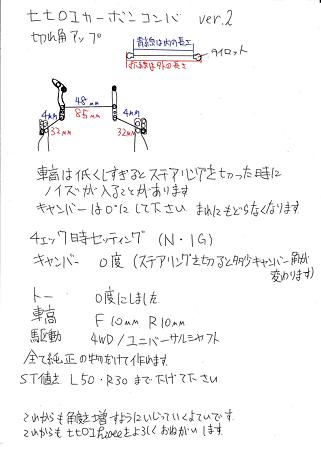 七七ロエカーボンコンバ ver.2
切れ角アップ
青線は内の長さ
タイロット
赤線は外の長さ
48mm
4mm 85mm 4mm
32mm 32mm
車高は低くしすぎるとステアリングを切った時に
ノイズが入ることがあります
キャンバーは0°にして下さい まれにもどらなくなります
4エック時セッティング (N・IG)
キャンバー 0度 (ステアリングを切ると多少キャンバー角が
変わります)
トー 0度にしました
車高 F 10mm R 10mm
駆動 4WD/ユニバーサルシャフト
全て純正の物だけで作れます
ST値を L50・R30まで下げて下さい
これからも角度を増すようにいじっていくよていです
これからも七七ロエ
をよろしくおねがいします